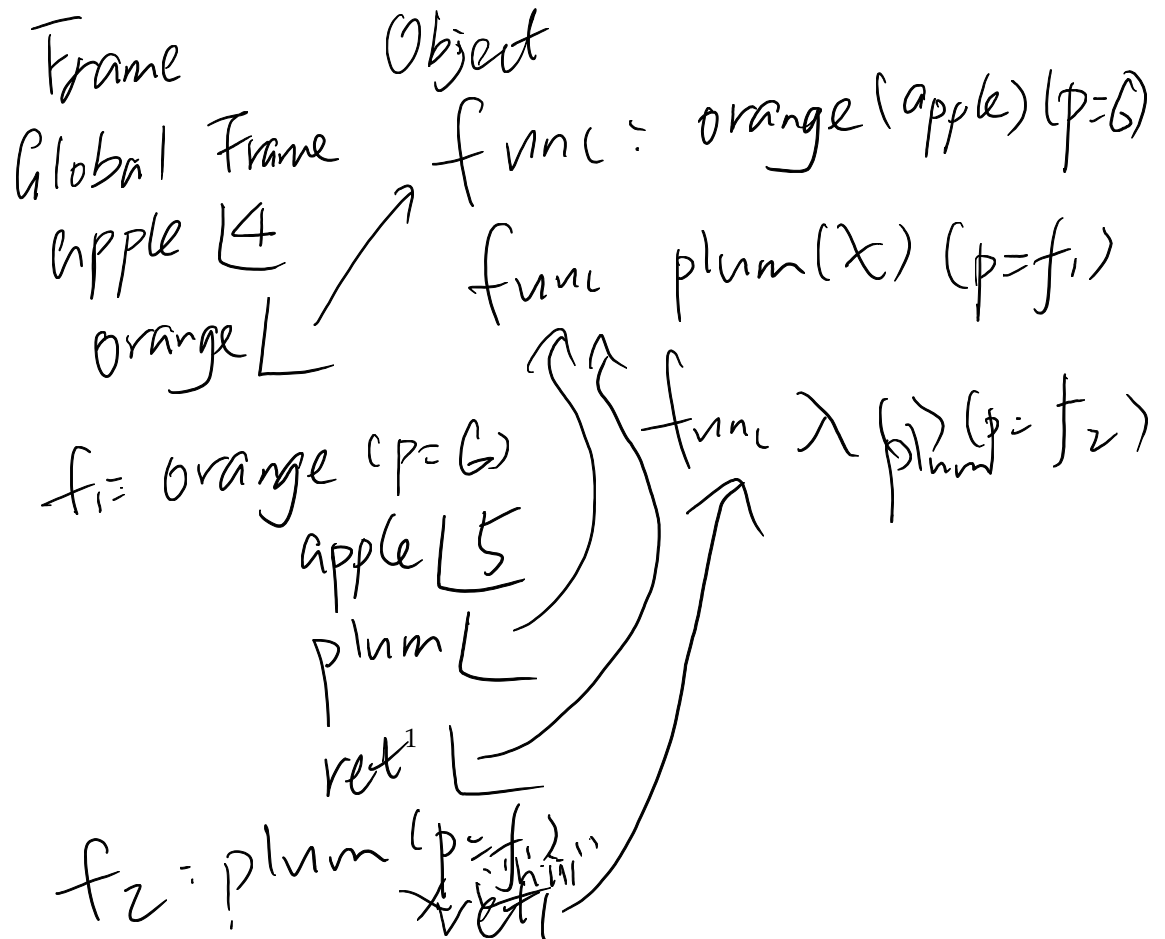 Frame Object
Global Frame func: orange(apple)(p=G)
apple 4 func plum(x) (p=f1)
orange
func λ plum (p=f2)
f1= orange (p=G)
apple 5
plum
ret
f2: plum (p=f1)
ret